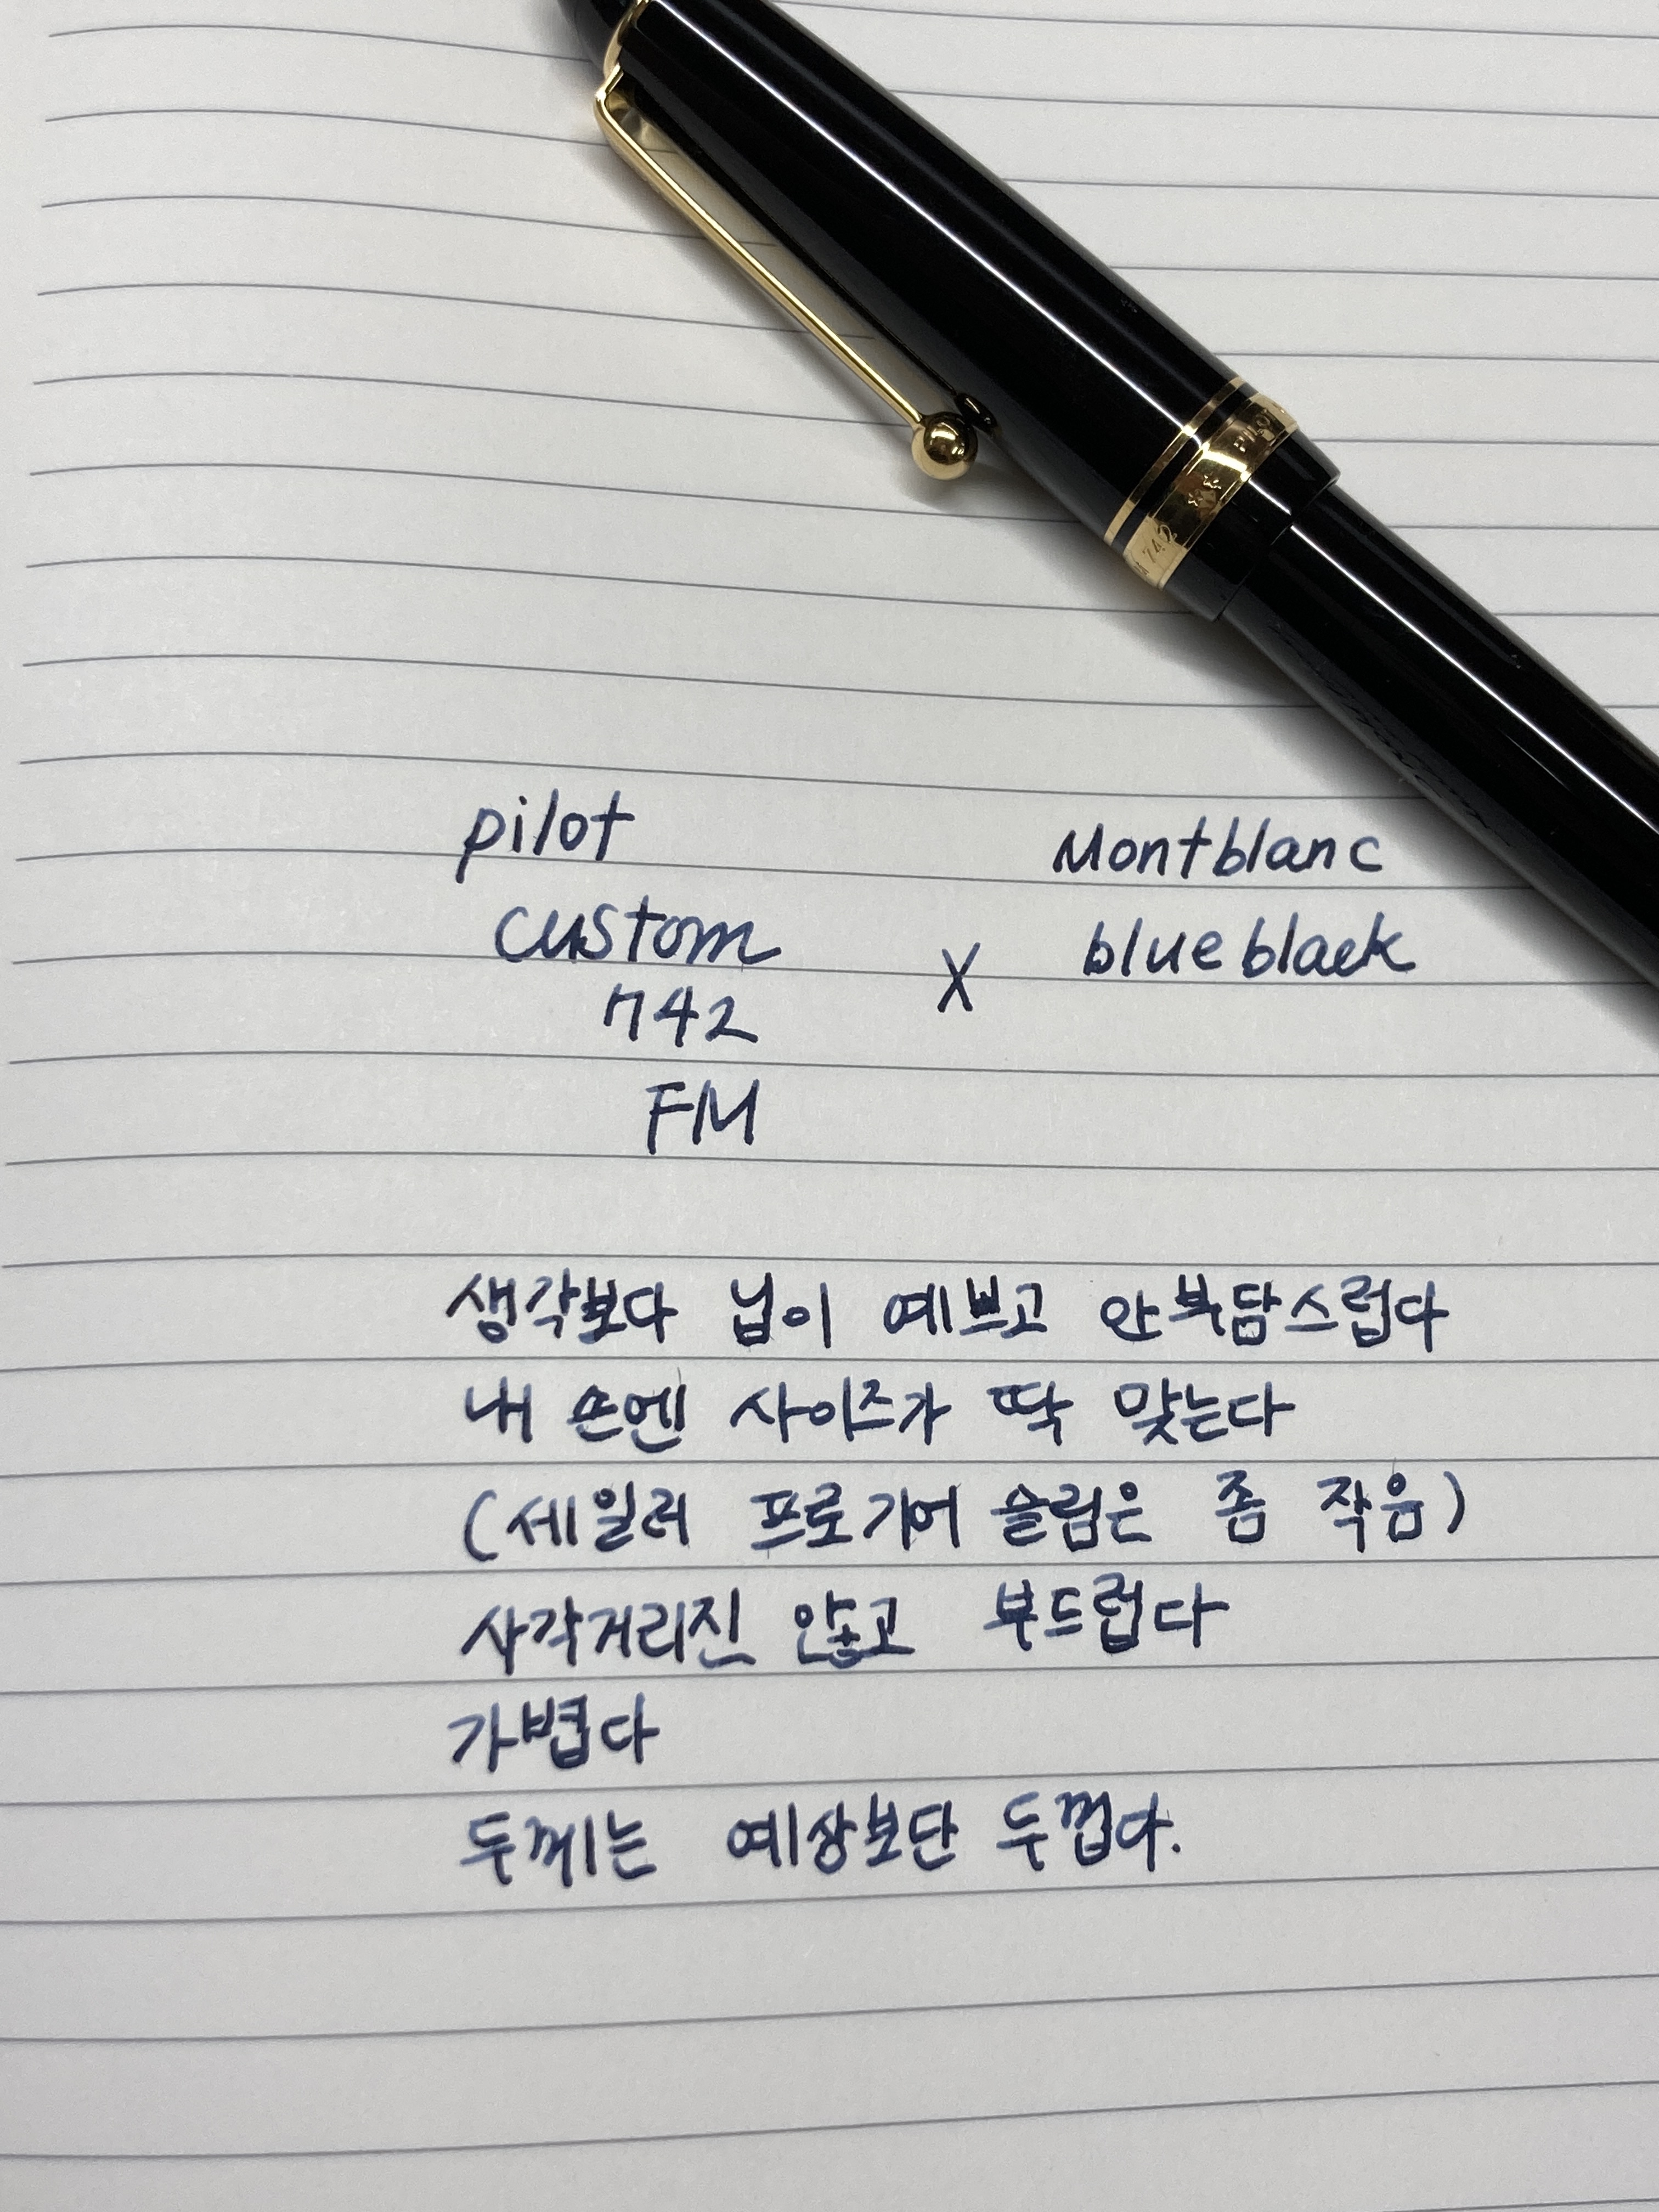 PILOT
742
pilot
custom
742
FM
X
Montblanc
blue black
생각보다 닙이 예쁘고 안부담스럽다
내 손엔 사이즈가 딱 맞는다
(세일러 프로기어 슬림은 좀 작음)
사각거리진 않고 부드럽다
가볍다
두께는 예상보단 두껍다.